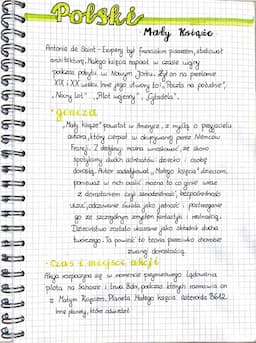 Polski
Mały Książę
Antoine de Saint-Exupery był francuskim pisarzem, studiował
architekturę. Małego Księcia napisał w czasie wojny
podczas pobytu w Nowym Jorku. Żył on na przełomie
XIX i XX wieku. Inne jego utwory to: „Poczta na południe",
„Nocny lot", „Pilot wojenny", „Cytadela".
• geneza
„Mały książę" powstał w Ameryce, z myślą o przyjacielu
autora, który cierpiał w okupowanej przez Niemców
Francji. Z dedykacji można wnioskować, że utwór
spotykamy dwóch adresatów: dziecko i osobę
dorosłą. Autor zadedykował „Małego księcia" dzieciom,
ponieważ w nich widzi można to co ginie wraz
z dorastaniem czyli samodzielność, bezpośredniość
uczuć, odczuwanie świata jako jedności i postrzeganie
go ze szczególnym zmysłem fantastyki i realności.
Dzieciństwo zostało ukazane jako składnik ducha
twórczego. Ta powieść to teoria przeciwko chorobie
zwanej dorosłością.
• Czas i miejsce akcji
Akcja rozpoczyna się w momencie przymusowego lądowania
pilota na Saharze i trwa 8dni, podczas których rozmawia on
z Małym Księciem. Planeta Małego Księcia asteroida B612.
Inne planety, które odwiedził